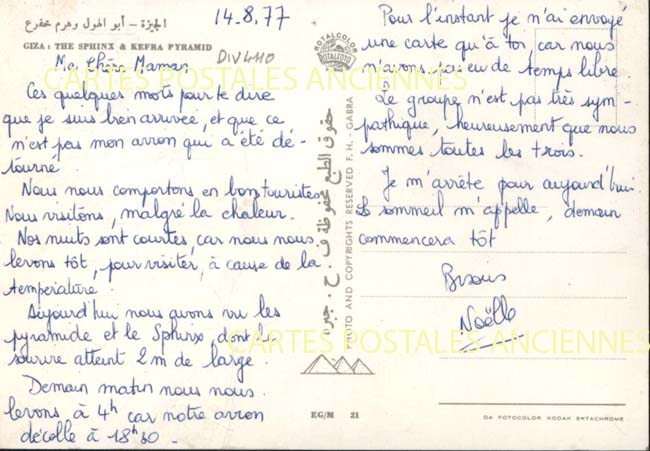 الجيزة – أبو الهول وهرم خفرع
GIZA: THE SPHINX & KEFRA PYRAMID
14.8.77
DIV4110
Ma Chère Maman
Ces quelques mots pour te dire
que je suis bien arrivée, et que ce
n'est pas mon avion qui a été dé-
tourné.
Nous nous comportons en bon touristes
Nous visitons, malgré la chaleur.
Nos nuits sont courtes, car nous nous
levons tôt, pour visiter, à cause de la
température.
Aujourd'hui nous avons vu les
pyramide et le Sphinx, dont le
sourire atteint 2m de large.
Demain matin nous nous
levons à 4h car notre avion
décolle à 18h30.
ROTALCOLOR
ROTALFOTO
حقوق الطبع محفوظة ف . ح . جبره
PHOTO AND COPYRIGHTS RESERVED F. H. - GABRA
EG/M 21
Pour l'instant je n'ai envoyé
une carte qu'à toi, car nous
n'avons pas eu de temps libre.
Le groupe n'est pas très sym-
pathique, heureusement que nous
sommes toutes les trois.
Je m'arrête pour aujourd'hui
Le sommeil m'appelle, demain
commencera tôt
Bisous
Noëlle
DA FOTOCOLOR KODAK EKTACHROME
CARTES POSTALES ANCIENNES
CARTES POSTALES ANCIENNES